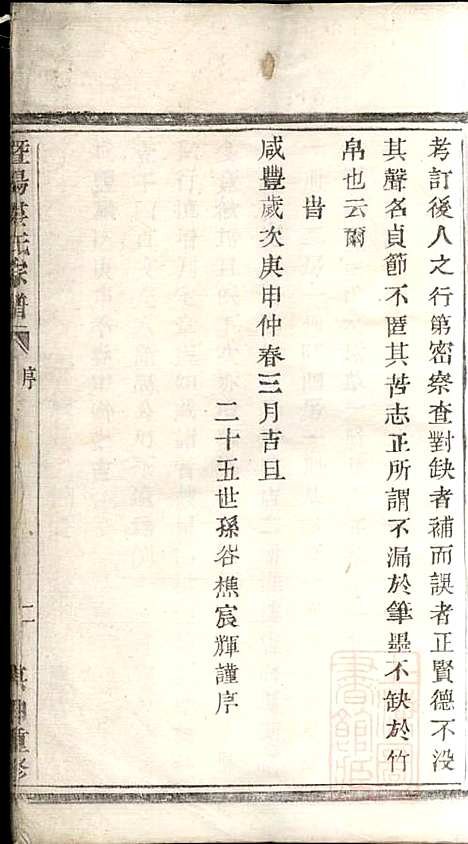 考訂後人之行第密察查對缺者補而誤者正賢德不没
其聲名貞節不匿其苦志正所謂不漏於筆墨不缺於竹
帛也云爾
旹
咸豐歲次庚申仲春三月吉旦
二十五世孫谷樵宸輝謹序
暨陽 氏宗譜
序
二
重修